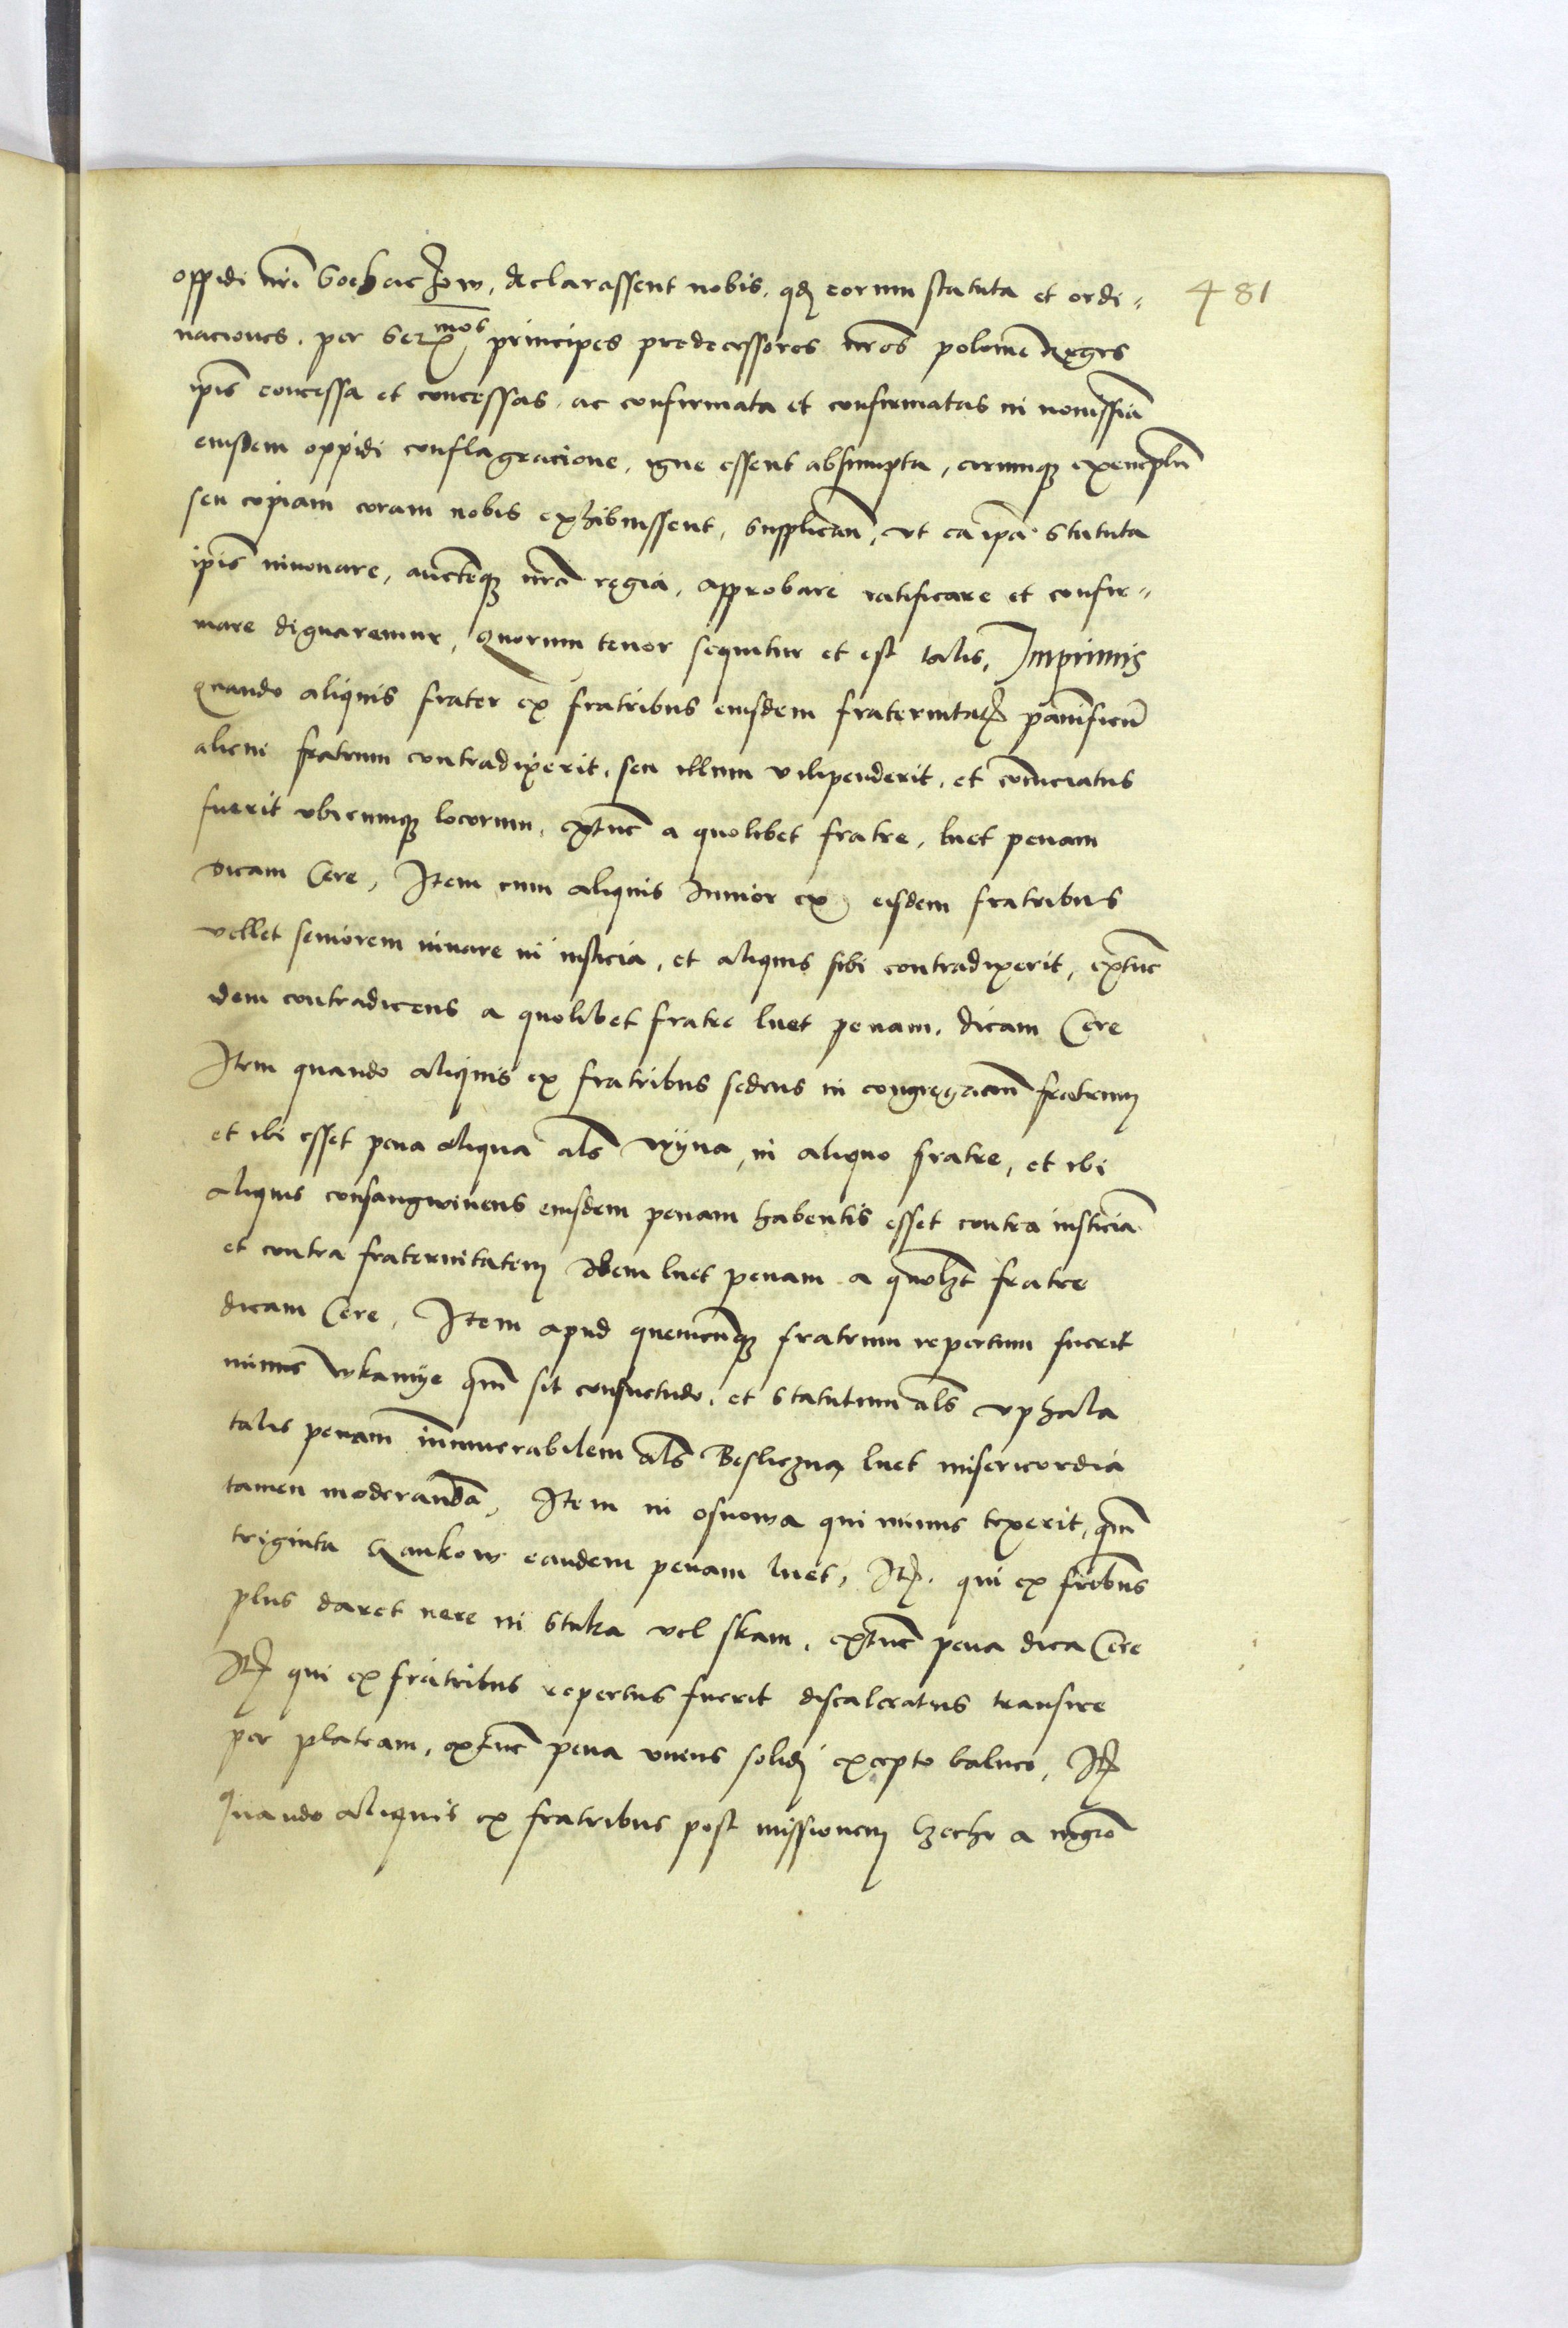 oppidi nri Sochaczow, declarassent nobis, qđ eorum statuta et ordi- 481
naciones, per Sermos principes predecessores nros polonie Reges
ipis concessa et concessas, ac confirmata et confirmatas in novissia
eiusdem oppidi conflagracione, igne essent absumpta, eorumq exemplu
seu copiam coram nobis exhibuissent, Supplican, vt ea ipa Statuta
ipis innouare, aucteq nra regia, approbare ratificare et confir-
mare dignaremur, Quorum tenor sequitur et est talis, Imprimis
quando aliquis frater ex fratribus eiusdem fraternitatis pannificu
alicui fratrum contradixerit, seu illum vilipenderit, et conviciatus
fuerit vbicumq locorum, extunc a quolibet fratre, luet penam
dicam Cere, Item cum aliquis Iunior ex eisdem fratribus
vellet seniorem iuvare in iusticia, et aliquis sibi contradixerit, extunc
idem contradicens a quolibet fratre luet penam, dicam Cere
Item quando aliquis ex fratribus sedens in congregacion fratrum
et ibi esset pena aliqua als wyna, in aliquo fratre, et ibi
aliquis consangwineus eiusdem penam habentis esset contra iusticia
et contra fraternitatem Idem luet penam a quolzt fratre
dicam Cere, Item apud quemcuq fratrum repertum fuerit
minus wkamye qm sit consuetudo, et Statutum als vphala
talis penam innumerabilem als Besliczna luet misericordia
tamen moderanda, Item in osnowa qui minus texerit, qm
triginta Gankow eandem penam luet, It. qui ex fribus
plus daret nere in Stuka vel skam, extunc pena dica Cere
It qui ex fratribus repertus fuerit discalceatus transire
per plateam, extunc pena vnius solidi excepto balneo, It
Quando aliquis ex fratribus post missionem czechi a mgro